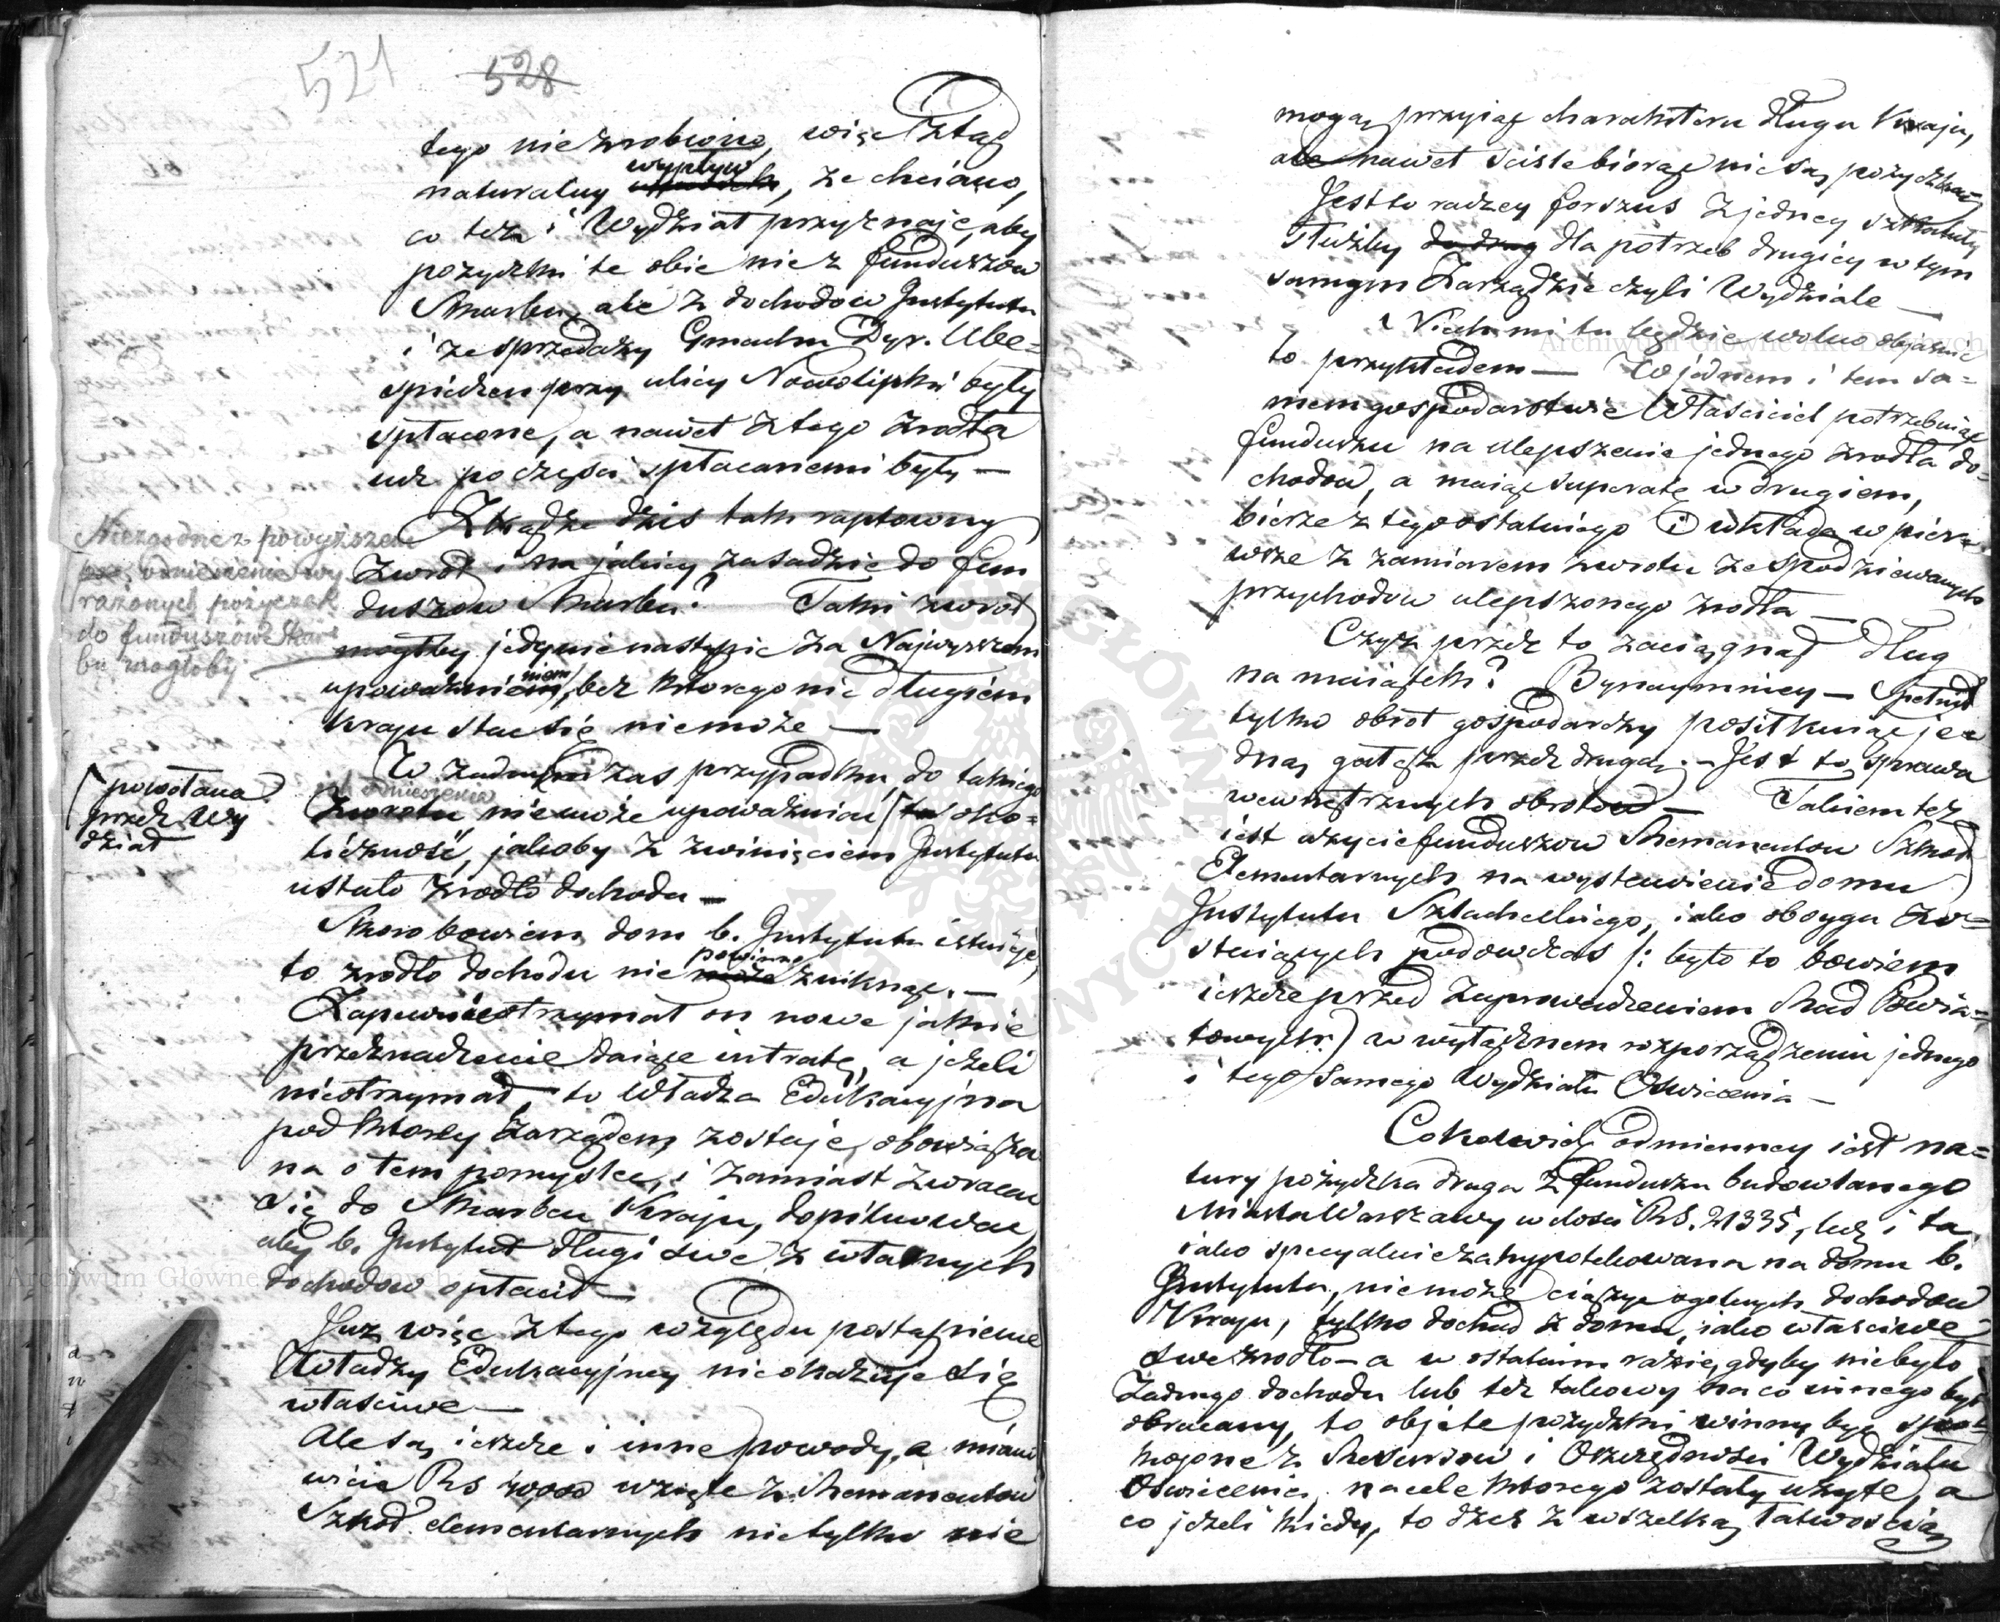 521 528
tego nie zrobiono, więc ztąd
naturalny wypływ, że chciano,
co też i Wydział przyznaje, aby
pożyczki te obie nie z funduszow
Skarbu, ale z dochodow Instytutu
i ze sprzedaży Gmachu Dyr. Ube=
spieczen przy ulicy Nowolipki były
spłacone, a nawet z tego zrodła
już po części spłacanemi były —
Zkądże dziś tak raptowny
zwrot i na jakiey zasadzie do fun
duszow Skarbu? Taki zwrot
mogłby jedynie nastąpic za Naywyższem
upoważnieniem, bez ktorego nic długiem
Kraju stac się niemoże —
Niezgodne z powyższem
odniesienie wy
rażonych pożyczek
do funduszów Skar
bu mogłoby
W żadnym zas przypadku, do takiego
ich odniesienia
zwrotu niemoże upoważniac ta oko=
liczność, jakoby z zwinięciem Instytutu
ustało zrodło dochodu —
powołana
przez Wy
dział
Skoro bowiem dom b. Instytutu istnieje,
to zrodło dochodu nie powinno zniknąc. —
Zapewnie otrzymał on nowe jakie
przeznaczenie daiące intratę, a jeżeli
nieotrzymał, to Władza Edukacyjna
pod ktorey Zarządem zostaje, obowiąza
na o tem pomyslec, i zamiast zwracac
się do Skarbu Kraju, dopilnowac
aby b. Instytut długi swe z własnych
dochodow opłacił —
Już więc z tego względu postąpienie
Władzy Edukacyjney nieokazuje się
własciwe —
Ale są ieszcze i inne powody, a miano
wicie Rs 40,000 wzięte z Remanentow
Szkoł elementarnych nietylko nie
mogą przyiąc charakteru długu Kraju,
ale nawet scisle biorąc nie są pożyczkami,
Jest to raczey forszus z jedney szkatuły
służby do drug dla potrzeb drugiey w tym
samym Zarządzie czyli Wydziale —
Niech mi tu będzie wolno objasnic
to przykładem — W jednem i tem sa=
mem gospodarstwie Właściciel potrzebuiąc
funduszu na ulepszenie jednego zrodła do=
chodow, a maiąc superatę w drugiem,
bierze z tego ostatniego i wkłada w pier=
wsze z zamiarem zwrotu ze spodziewanych
przychodow ulepszonego zrodła —
Czyż przez to zaciągnął dług
na maiątek? Bynaymniey — spełnił
tylko obrot gospodarczy posiłkuiąc je=
dną gałęź przez drugą. — Jest to sprawa
wewnętrznych obrotow — Takiem też
iest użycie funduszow Remanentow Szkoł
Elementarnych na wystawienie domu
Instytutu Szlacheckiego, iako oboygu zo=
staiących podowczas /: było to bowiem
ieszcze przed zaprowadzeniem Rad Powia=
towych:/ w wyłącznem rozporządzeniu jednego
i tego samego Wydziału Oswiecenia —
Cokolwiek odmienney iest na=
tury pożyczka druga z funduszu budowlanego
Miasta Warszawy w ilosci Rs. 21335, lecz i ta
iako specyalnie zahypotekowana na domu b.
Instytutu, niemoże ciążyc ogolnych dochodow
Kraju, tylko dochod z domu, iako własciwe
swe zrodło — a w ostatnim razie, gdyby niebyło
żadnego dochodu lub też takowy na co innego był
obracany, to objęte pożyczki winny byc spo=
kojone z Rekursow i Oszczędnosci Wydziału
Oswiecenia, na cele ktorego zostały użyte, a
co jeżeli kiedy, to dziś z wszelką łatwoscią
Archiwum Główne Akt Dawnych
Archiwum Główne Akt Dawnych